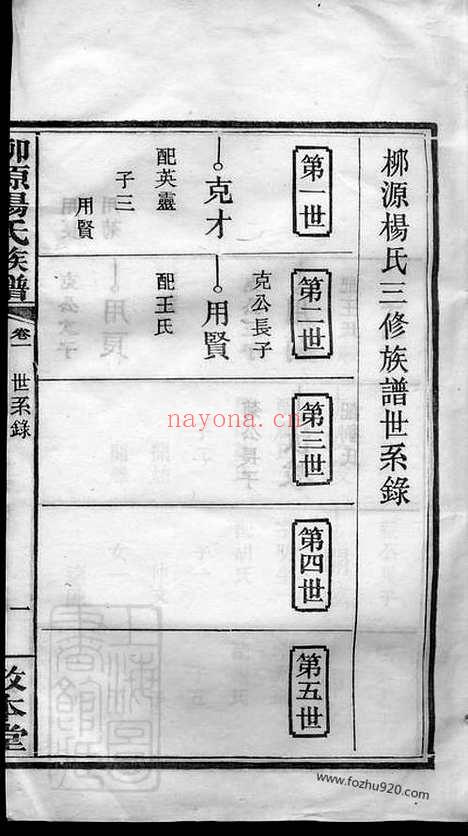 柳源楊氏三修族譜世系錄
第一世
克才
配英靈
子三
用賢
第二世
克公長子
用賢
配王氏
第三世
第四世
第五世
柳源楊氏族譜
卷一
世系錄
一
敦本堂
nayona.cn
www.fozhu920.com